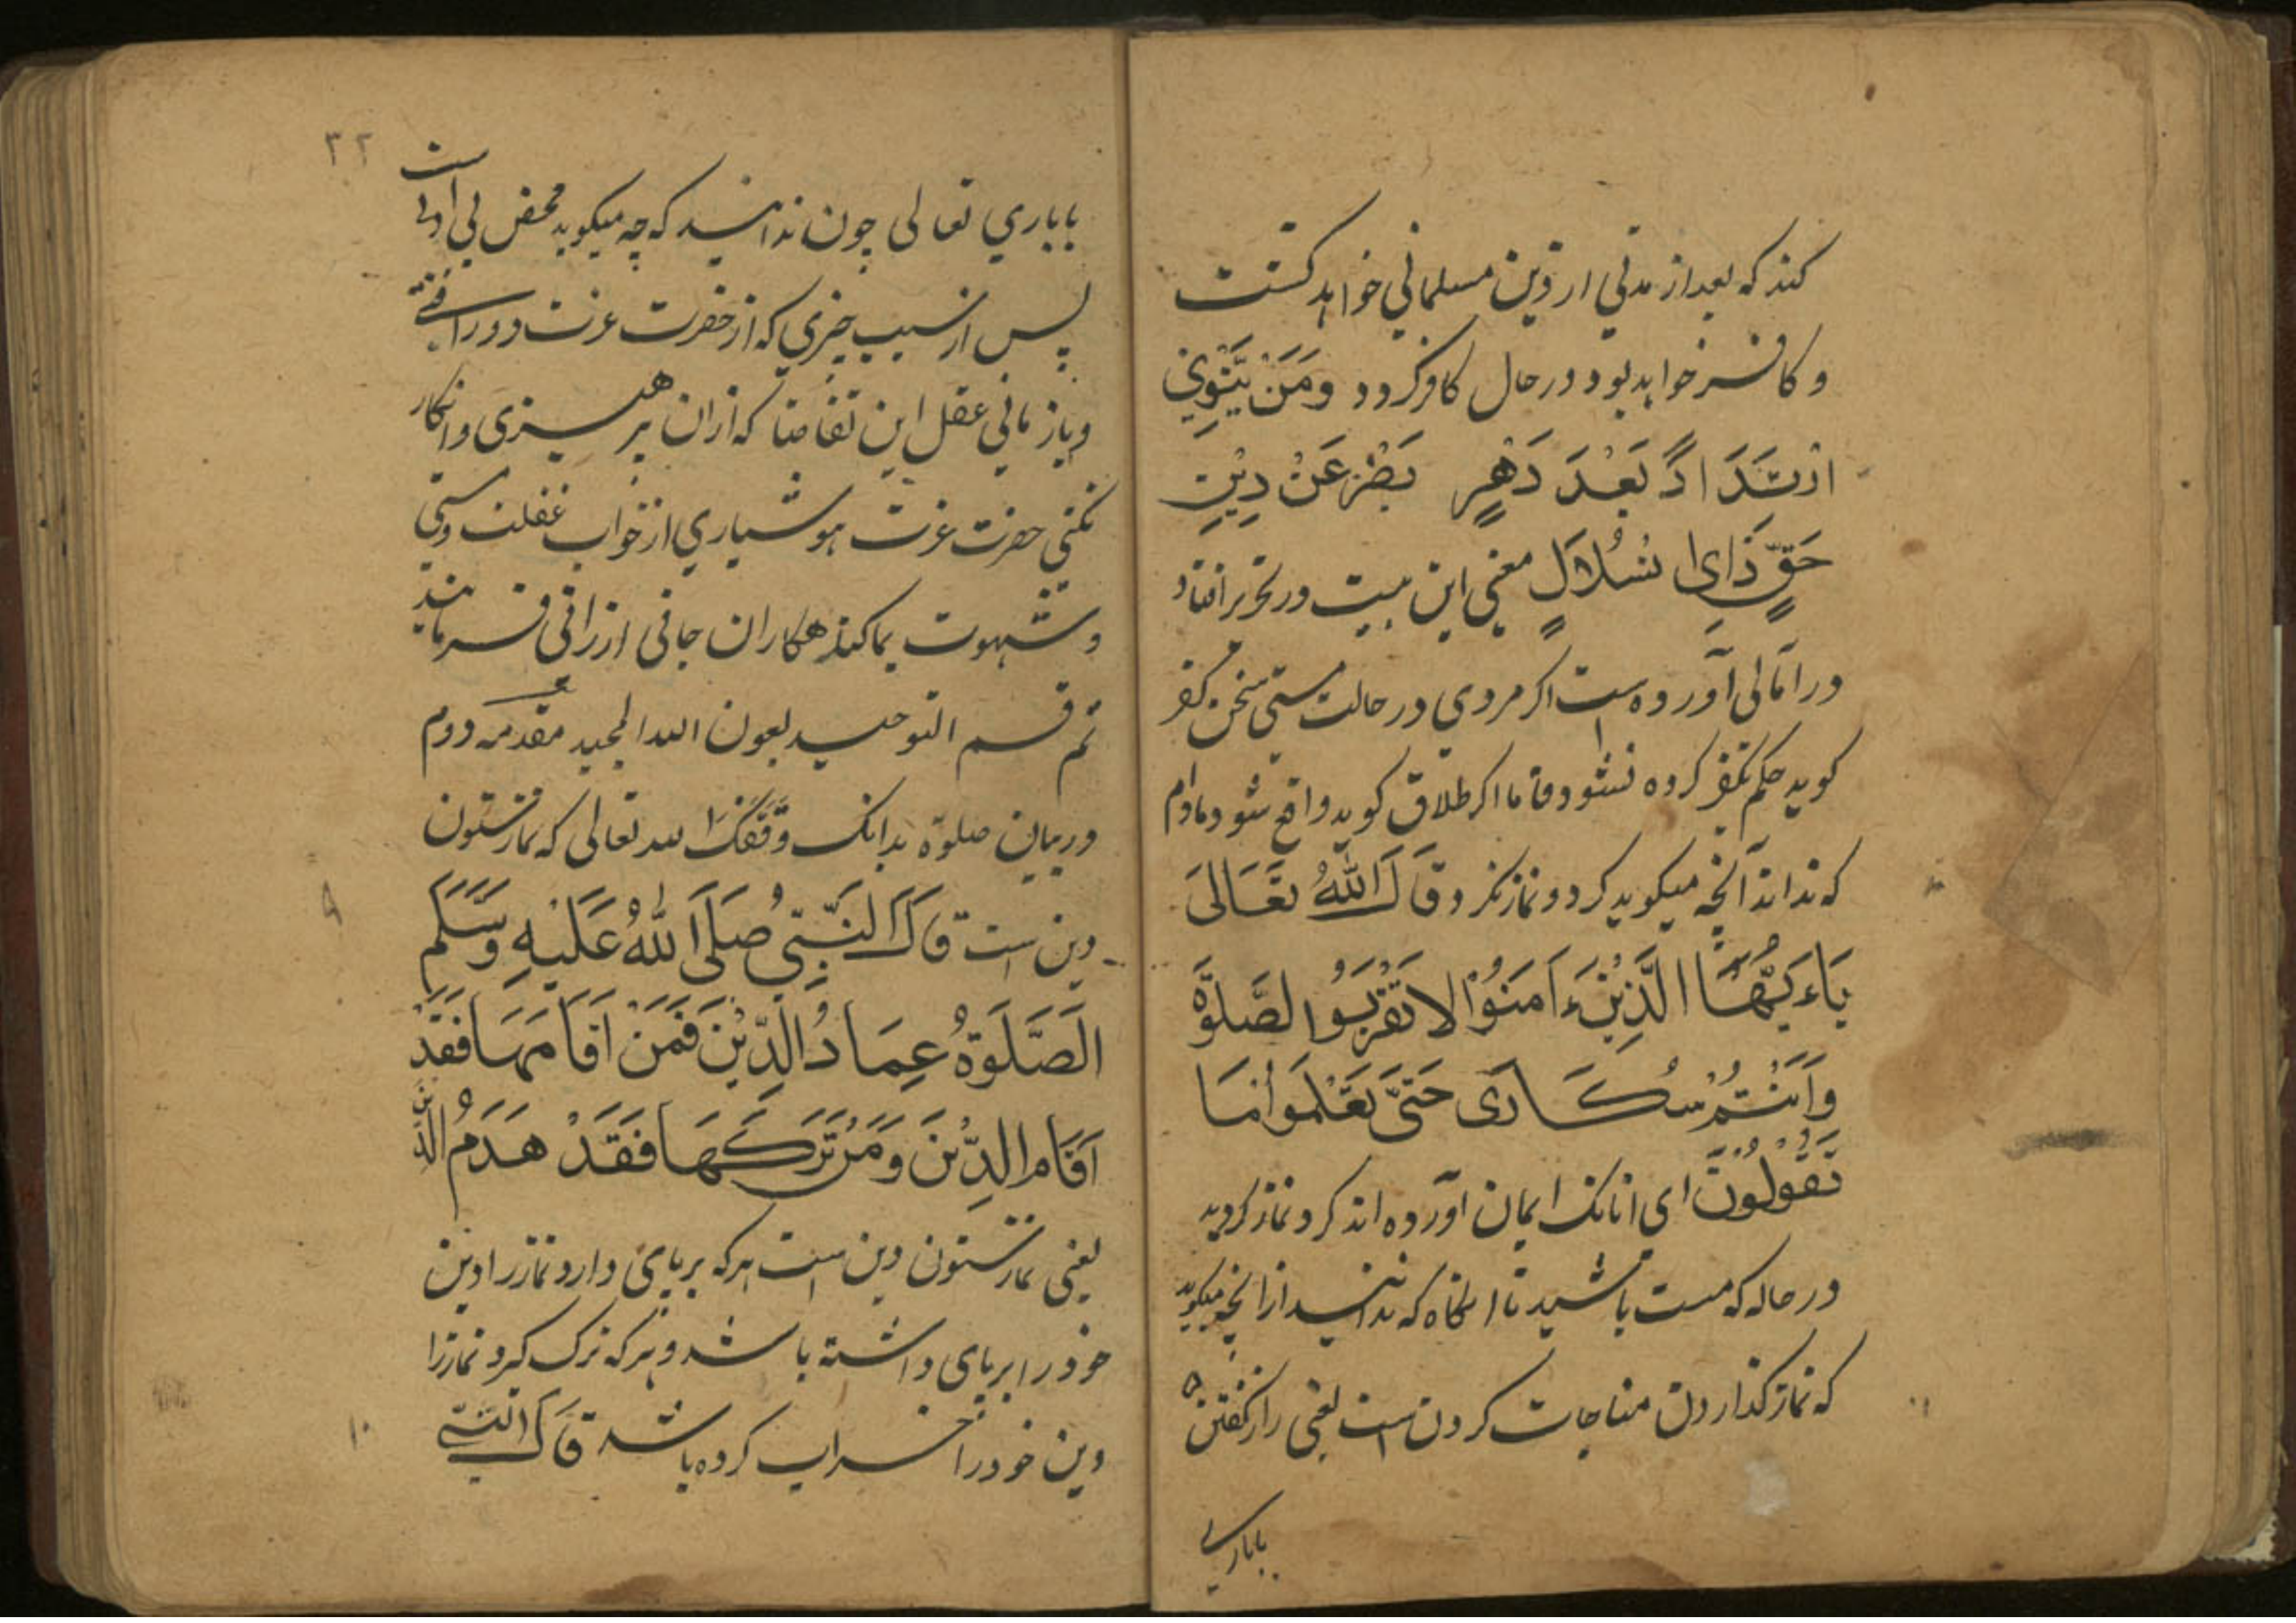 کند که بعد از مدتی از دین مسلمانی خواهد گشت
و کافر خواهد بود در حال کافر گردد وَمَنْ يَنْوِي
ارْتِدَادًا بَعْدَ دَهْرٍ يَصِرْ عَنْ دِيْنِ
حَقٍّ ذَا اِنْسُلَالٍ معنی این بیت در تحریر افتاد
در امالی آورده است اگر مردی در حالت مستی سخن کفر
کوید حکم بکفر کرده نشود فاما اگر طلاق کوید واقع شود مادام
که نداند آنچه میکوید گرد نماز نگردد قَالَ اللهُ تَعَالَى
يَاءَيُّهَا الَّذِيْنَ ءَامَنُوْا لَا تَقْرَبُوا الصَّلٰوةَ
وَاَنْتُمْ سُكَارَى حَتَّى تَعْلَمُوْا مَا
تَقُوْلُوْنَ ای انانک ایمان آورده اند گرد نماز نگردید
در حاله که مست باشید تا انگاه که بدانید از انچه میکوید
که نماز گذاردن مناجات کردن است یعنی راز گفتن
بباری
۳۲
بباری تعالی چون ندانید که چه میکوید محض بی ادبی است
پس از سبب چیزی که از حضرت عزت دور افتی
و باز مانی عقل این تقاضا که ازان پرهیزی و انکار
نکنی حضرت عزت هوشیاری از خواب غفلت و مستی
و شهوت بما گنهکاران جافی ارزانی فرمایند
تم قسم التوحید بعون الله المجید مقدمه دوم
در بیان صلوة بدانک وَفَّقَكَ الله تعالی که نماز ستون
دین است قَالَ النَّبِيُّ صَلَّى اللهُ عَلَيْهِ وَسَلَّمَ
الصَّلَوةُ عِمَادُ الدِّيْنِ فَمَنْ اَقَامَهَا فَقَدْ
اَقَامَ الدِّيْنَ وَمَنْ تَرَكَهَا فَقَدْ هَدَمُ الدِّيْنَ
یعنی نماز ستون دین است هرکه برپای دارد نماز را دین
خود را برپای داشته باشد و هرکه ترک گیرد نماز را
دین خود را خراب کرده باشد قَالَ النَّبِيُّ